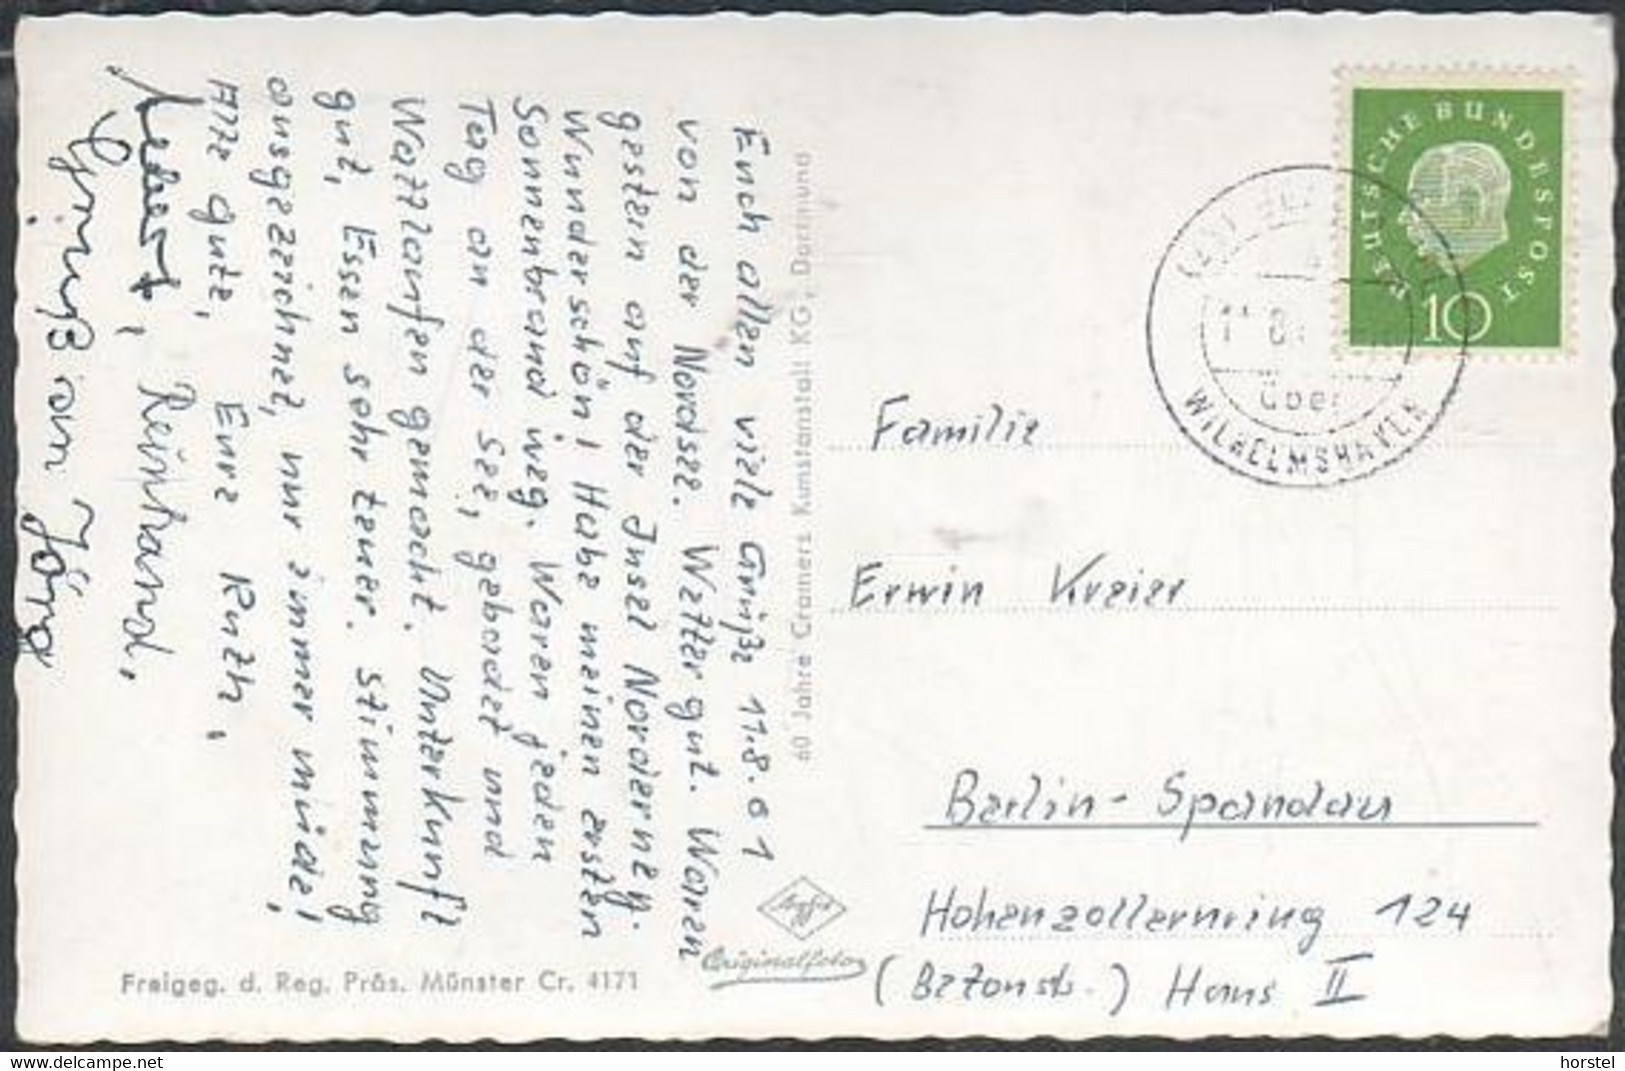 Euch allen viele Grüße 11.8.61
von der Nordsee. Wetter gut. Waren
gestern auf der Insel Norderney.
Wunderschön! Habe meinen ersten
Sonnenbrand weg. Waren jeden
Tag an der See, gebadet und
Wattlaufen gemacht. Unterkunft
gut, Essen sehr teuer. Stimmung
ausgezeichnet, nur immer müde!
Alle gute, Eure Ruth,
Reinhand,
Grüß an Jörg
60 Jahre Cramers Kunstanstalt KG, Dortmund
Agfa
Originalfoto
Freigeg. d. Reg. Präs. Münster Cr. 4171
DEUTSCHE BUNDESPOST
10
über
WILHELMSHAVEN
Familie
Erwin Kreier
Berlin-Spandau
Hohenzollernring 124
(Betonstb.) Haus II
horstel